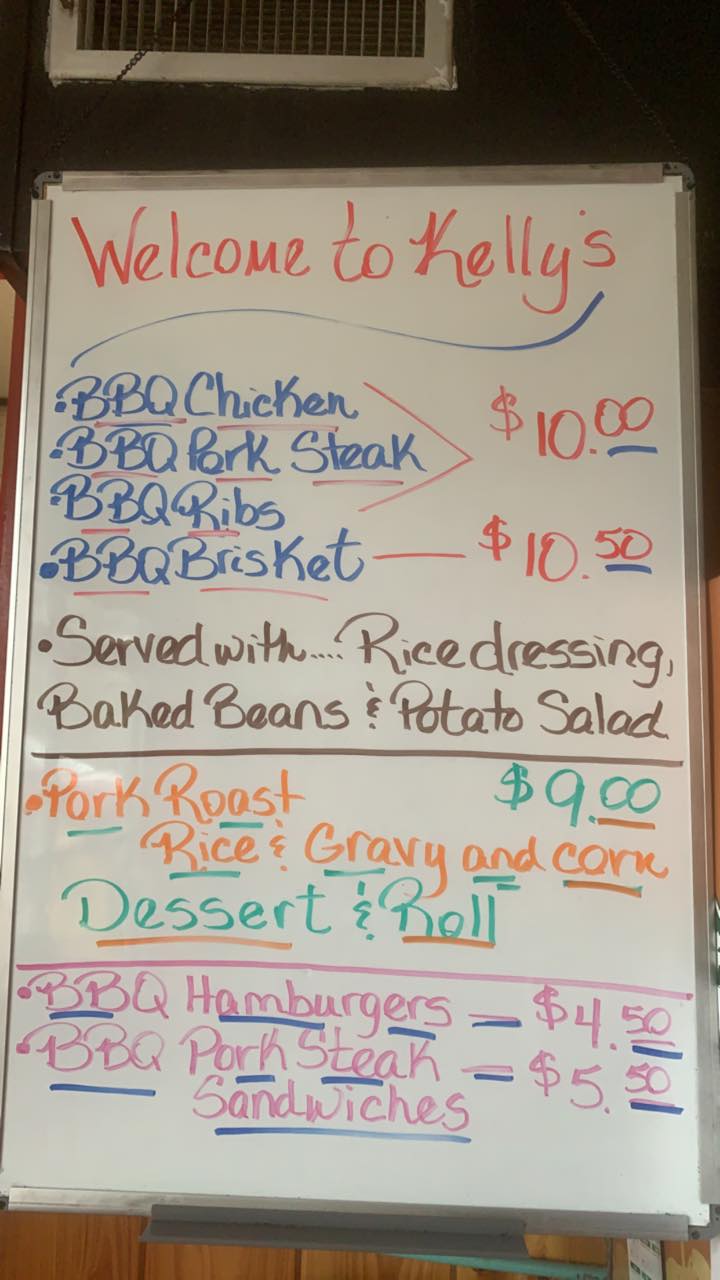 Welcome to Kelly's
•BBQ Chicken
•BBQ Pork Steak $10.00
•BBQ Ribs
•BBQ Brisket — $10.50
•Served with.... Rice dressing,
Baked Beans & Potato Salad
•Pork Roast $9.00
Rice & Gravy and corn
Dessert & Roll
•BBQ Hamburgers — $4.50
•BBQ Pork Steak — $5.50
Sandwiches